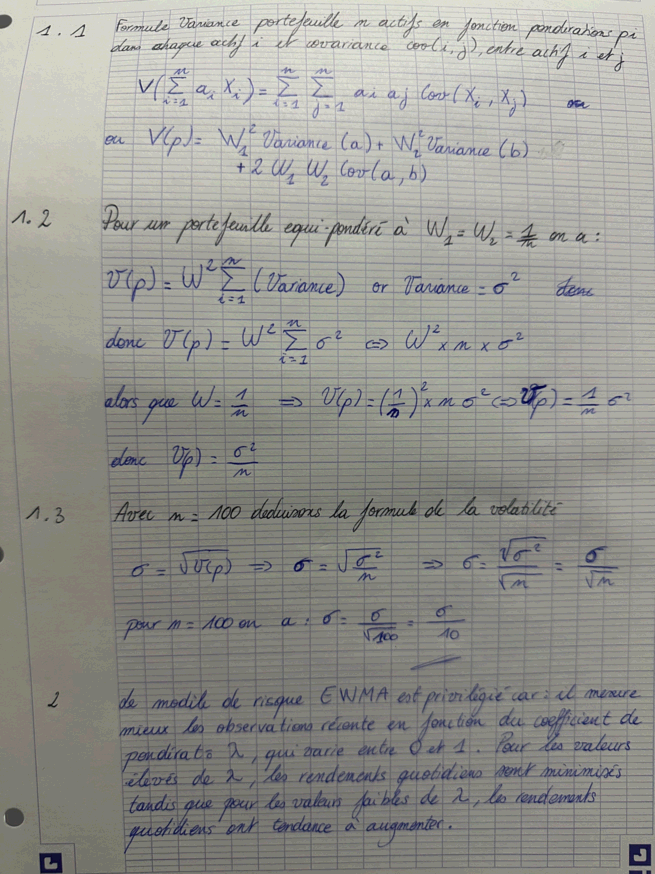 1.1 Formule Variance portefeuille n actifs en fonction pondérations pi
dans chaque actif i et covariance cov(i, j), entre actif i et j
V(∑_{i=1}^{n} a_i X_i) = ∑_{i=1}^{n} ∑_{j=1}^{n} a_i a_j Cov(X_i, X_j) ou
ou V(p) = W_1^2 Variance (a) + W_2^2 Variance (b)
+ 2 W_1 W_2 Cov(a, b)
1.2 Pour un portefeuille equi-pondéré à W_1 = W_2 = 1/n on a :
V(p) = W^2 ∑_{i=1}^{n} (Variance) or Variance = σ^2 donc
donc V(p) = W^2 ∑_{i=1}^{n} σ^2 ⇔ W^2 × n × σ^2
alors que W = 1/n ⇒ V(p) = (1/n)^2 × n σ^2 ⇔ V(p) = 1/n σ^2
donc V(p) = σ^2/n
1.3 Avec n = 100 deduisons la formule de la volatilité
σ = √V(p) ⇒ σ = √(σ^2/n) ⇒ σ = √σ^2/√n = σ/√n
pour n = 100 on a : σ = σ/√100 = σ/10
2 de modile de risque EWMA est privilégié car : il mesure
mieux les observations réconte en fonction du coefficient de
pondirat° λ, qui varie entre 0 et 1. Pour les valeurs
élevés de λ, les rendements quotidiens sont minimisés
tandis que pour les valeurs faibles de λ, les rendements
quotidiens ont tendance à augmenter.